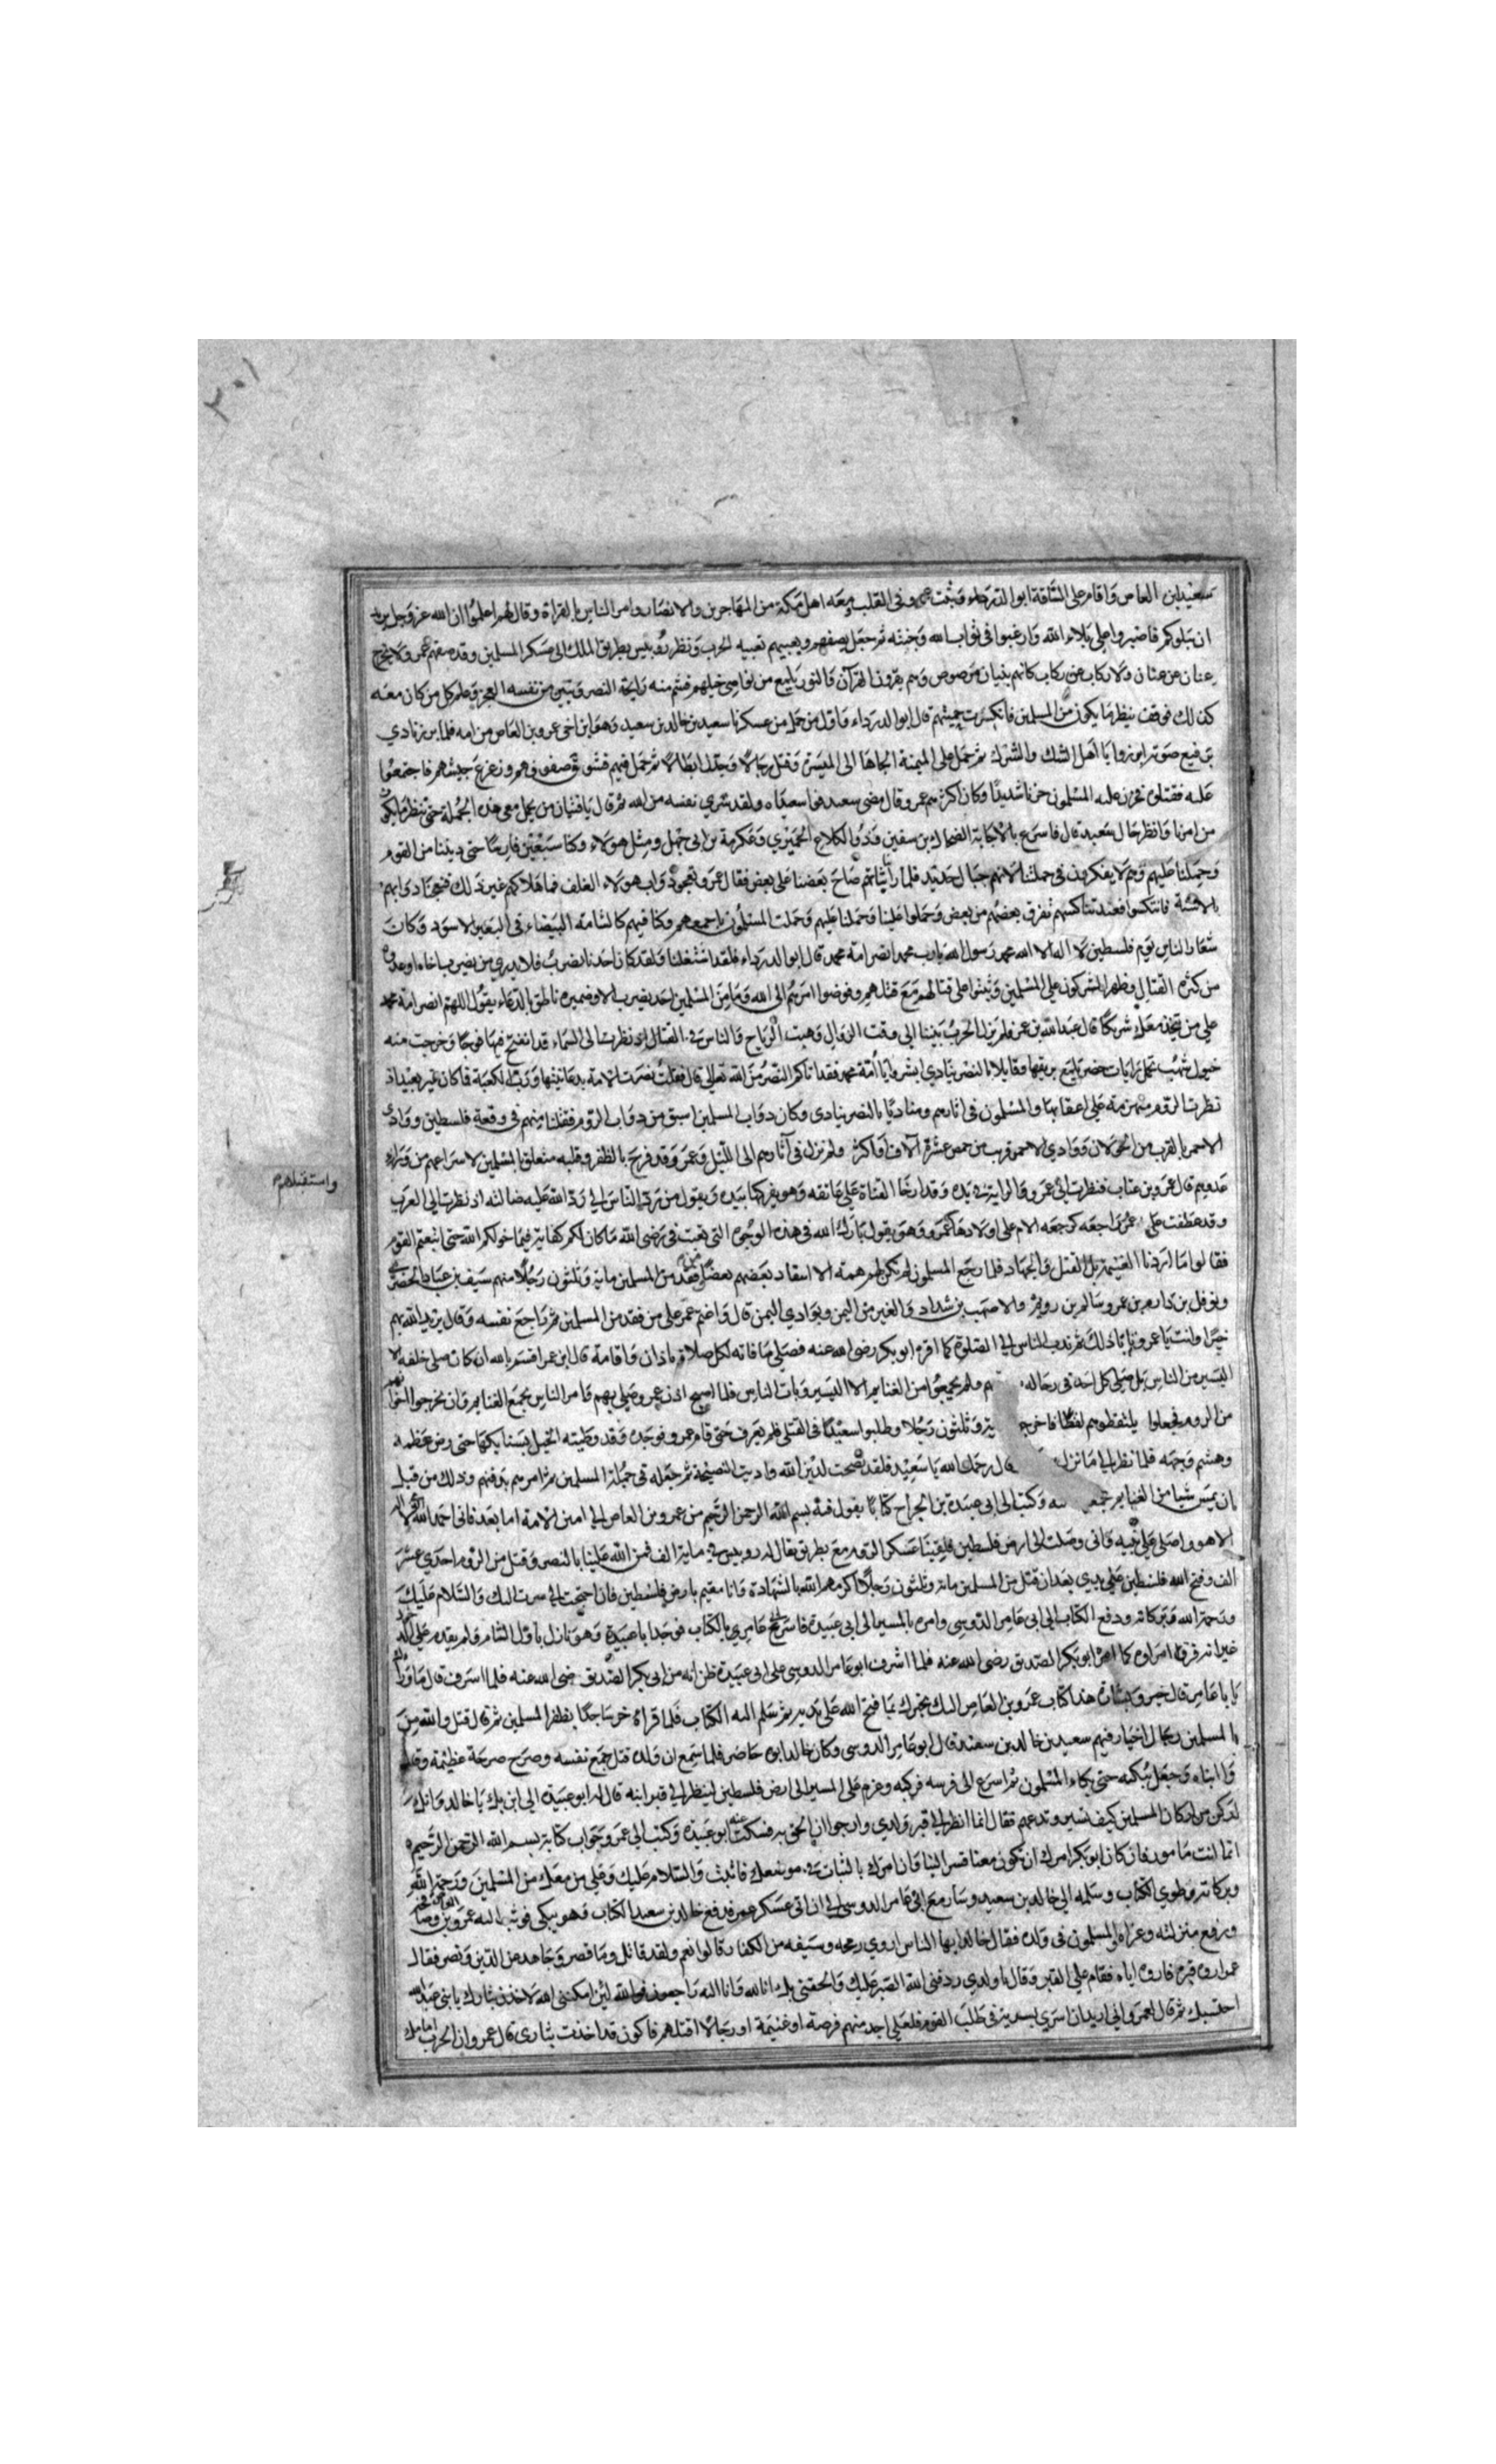 ٢٠١
سعيد بن العاص واقام على الساقة ابو الدرداء وثبت عمرو في القلب ومعه اهل مكة من المهاجرين والانصار وامر الناس بالقراءة وقال لهم اعلموا ان الله عز وجل يريد
ان يبلوكم فاصبروا على بلاء الله وارغبوا في ثواب الله وجنته ثم جعل يصفهم ويعبيهم تعبيه الحرب ونظر روبيس بطريق الملك الى عسكر المسلمين وقد صفهم عمرو ولا يخرج
عنان عن عنان ولا ركاب عن ركاب كانهم بنيان مرصوص وهم يقرون القرآن والنور يلمع من نواصي خيلهم فشم منه رايحة النصر وتبين من نفسه العجز وعلم كل من كان معه
كذلك فوقف ينظر ما يكون من المسلمين فانكسرت حميتهم قال ابو الدرداء واول من حمل من عسكرنا سعيد بن خالد بن سعيد وهو ابن اخي عمرو بن العاص من امه فلما برز نادي
برفيع صوته ابرزوا يا اهل الشك والشرك ثم حمل على الميمنة الجاها الى الميسرة وقتل رجالا وجدل ابطالا ثم حمل فيهم فشوش صفوفهم وزعزع جيشهم فاجتمعوا
عليه فقتلوه فحزن عليه المسلمون حزنا شديدا وكان اكثرهم عمرو وقال مضى سعيد فواسعيداه ولقد شري نفسه من الله ثم قال يا فتيان من يحمل معي هذه الحملة حتى ننظر ما يكون
من امرنا وانظر حال سعيد قال فاسرع بالاجابة الضحاك بن سفين وذو الكلاع الحميري وعكرمة بن ابي جهل ومثل هولاء وكنا سبعين فارسا حتى دنينا من القوم
وحملنا عليهم وهم لا يفكرون في حملتنا لانهم جبال حديد فلما رأيناهم صاح بعضنا على بعض فقال عمرو بعجوا دواب هولاء الغلف فما هلاكهم غير ذلك فبعجنا دوابهم
بالاسنة فانتكسوا فعند تناكسهم تفرق بعضهم من بعض وحملوا علينا وحملنا عليهم وحملت المسلمون باجمعهم وكنا فيهم كالشامة البيضاء في البعير الاسود وكان
شعار الناس يوم فلسطين لا اله الا الله محمد رسول الله يا رب محمد انصر امة محمد قال ابو الدرداء فلقد اشتغلنا ولقد كان احدنا يضرب فلا يدري من يضرب اخاه او عدوه
من كثرة القتال وظهر المشركون على المسلمين وثبتوا على قتالهم مع قتلهم وفوضوا امرهم الى الله وما من المسلمين احد يضرب الا وضميره ناطق بالدعاء يقول اللهم انصر امة محمد
على من يتخذ معك شريكا قال عبد الله بن عمر فلم يزل الحرب بيننا الى وقت الزوال وهبت الرياح والناس في القتال اذ نظرت الى السماء قد انفتح فيها فرجا وخرجت منه
خيول شهب تحمل رايات خضر تلمع بريقها وقايلا بالنصر ينادي ابشروا يا امة محمد فقد اتاكم النصر من الله تعالى قال فقلت نصرت الامة بدعا نبيها ورب الكعبة فما كان غير بعيد اذ
نظرت الروم منهزمة على اعقابها والمسلمون في اثارهم ومناديا بالنصر ينادى وكان دواب المسلمين اسبق من دواب الروم فقتلنا منهم في وقعة فلسطين ووادي
الاحمر بالقرب من وادي الاحمر قريب من خمس عشرة آلاف او اكثر ولم نزل في آثارهم الى الليل وعمرو قد فرح بالظفر وقلبه متعلق بالمسلمين لاسراعهم من وراء
عدوهم قال عمرو بن عتاب فنظرت الى عمرو والراية في يده وقد ارخا القناة على عاتقه وهو يفركها بيده ويقول من يرد الناس الي رد الله عليه ضالته اذ نظرت الى العرب
وقد عطفت على عمرو راجعه كرجعه الام على اولادها وهو يقول بارك الله في هذه الوجوه التي تعبت في رضى الله ما كان لكم كفاية فيما خولكم الله حتى اتبعتم القوم
فقالوا ما اردنا الغنيمة بل القتل والجهاد فلما رجع المسلمون لم تكن لهم همة الا افتقاد بعضهم بعضا ففقد من المسلمين ماية وثلثون رجلا منهم سيف بن عباد الحضرمي
ونوفل بن دارم بن عمرو وسالم بن رويم والاصهب بن شداد والغير من اليمن وبوادي اليمن قال واغتم عمرو على من فقد من المسلمين ثم راجع نفسه وقال يريد الله بهم
خيرا وانت يا عمرو تابا ذلك ثم ندب الناس الى الصلوة كما امره ابو بكر رضي الله عنه فصلى ما فاته لكل صلاة باذان واقامة قال ابن عمر اقسم بالله ان كان صلى خلفه الا
اليسير من الناس بل صلى كل احد في رحاله ولم يجمعوا من الغنايم الا اليسير وبات الناس فلما اصبح اذن عمرو وصلى بهم وامر الناس بجمع الغنايم وان يخرجوا اخوانهم
من الروم فجعلوا يلتقطوهم لقطا فاخرجوا وثلثون رجلا وطلبوا سعيدا في القتلى فلم يعرف حتى قام عمرو فوجده وقد وطيته الخيل بسنابكها حتى رض عظمه
وهشم وجهه فلما نظر الى ما نزل قال رحمك الله يا سعيد فلقد نصحت لدين الله واديت النصيحة ثم جعله في جملة المسلمين ثم امرهم بدفنهم وذلك من قبل
ان يمس شيا من الغنايم وكتب الى ابي عبيدة بن الجراح كتابا يقول فيه بسم الله الرحمن الرحيم من عمرو بن العاص الى امين الامة اما بعد فاني احمد الله الذي لا اله
الا هو واصلي على نبيه واني وصلت الى ارض فلسطين فلقينا عسكر الروم مع بطريق يقال له روبيس في ماية الف فمن الله علينا بالنصر وقتل من الروم احدى عشر
الف وفتح الله فلسطين على يدي بعد ان قتل من المسلمين ماية وثلثون رجلا اكرمهم الله بالشهادة وانا مقيم بارض فلسطين فان احتجت الي سرت اليك والسلام عليك
ورحمة الله وبركاته ودفع الكتاب الى ابي عامر الدوسي وامره بالمسير الى ابي عبيدة فاسرع عامر بالكتاب فوجد ابا عبيدة وهو نازل باول الشام فلم يقدم على الدخول
غير انه فرق امراوه كما امره ابو بكر الصديق رضي الله عنه فلما اشرف ابو عامر الدوسي على ابي عبيدة ظن انه من ابي بكر الصديق رضي الله عنه فلما اشرف قال ما وراءك
يا با عامر قال خير وبشارة هذا كتاب عمرو بن العاص اليك يخبرك بما فتح الله على يديه ثم سلم اليه الكتاب فلما قراه خر ساجدا بظفر المسلمين ثم قال قتل والله من
المسلمين رجال اخيار فيهم سعيد بن خالد بن سعيد قال ابو عامر الدوسي وكان خالد ابوه حاضر فلما سمع ان ولده قتل جمع نفسه وصرخ صرخة عظيمة وقال
وا ابناه وجعل يبكيه حتى بكاه المسلمون ثم اسرع الى فرسه فركبه وعزم على المسير الى ارض فلسطين لينظر الى قبر ابنه قال له ابو عبيدة الى اين بك يا خالد وانك
لركن من اركان المسلمين كيف تسير وتدعهم فقال انما انظر الى قبر ولدي وارجوا ان الحق به فسكت عنه ابو عبيدة وكتب الى عمرو جواب كتابه بسم الله الرحمن الرحيم
انما انت مامور فان كان ابو بكر امرك ان تكون معنا فسر الينا وان امرك بالثبات في موضعك فاثبت والسلام عليك وعلى من معك من المسلمين ورحمة الله
وبركاته وطوي الكتاب وسلمه الى خالد بن سعيد وسار مع ابي عامر الدوسي الى ان اتى عسكر عمرو فدفع خالد بن سعيد الكتاب وهو يبكي فوثب اليه عمرو بن العاص وصافحه
ورفع منزلته وعزاه المسلمون في ولده فقال خالد ايها الناس اروي رمحه وسيفه من الكفار قالوا نعم ولقد قاتل وما قصر وجاهد عن الدين ونصر فقال
اروه قبره فاروه اياه فقام على القبر وقال يا ولدي رزقني الله الصبر عليك والحقني بك انا لله وانا اليه راجعون فوالله لئن امكنني الله لاخذن بثارك يا بني عند الله
احتسبك ثم قال لعمرو اني اريد ان اسري بسرية في طلب القوم فلعلي اجد منهم فرصة او غنيمة او رجالا اقتلهم فاكون قد اخذت بثارى قال عمرو ان الحرب امامك
واستقبلهم